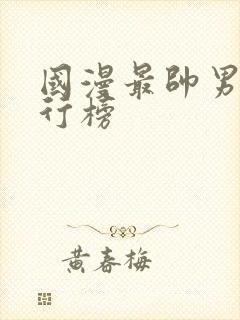 國漫最帥男
行榜
黃春梅